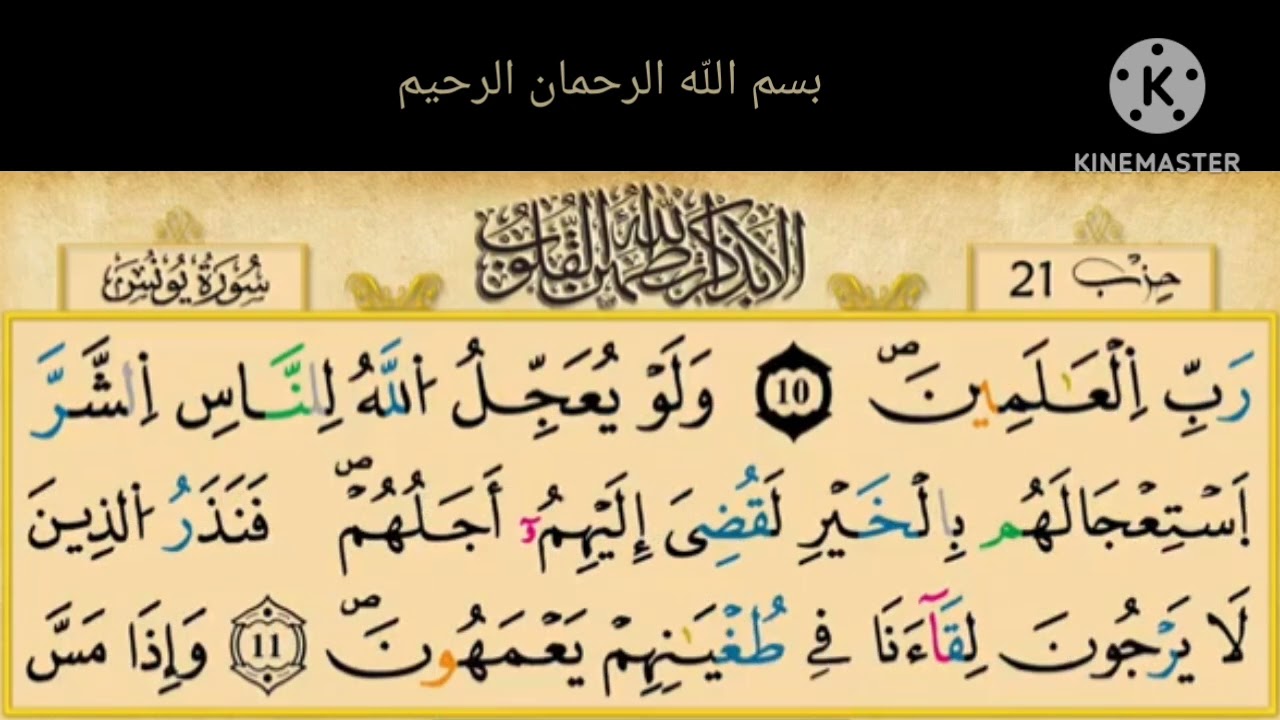 بسم الله الرحمان الرحيم
KINEMASTER
الا بذكر الله تطمئن القلوب
حِزْب 21
سُورَةُ يُونُسَ
رَبِّ اِ۬لْعَٰلَمِينَۖ 10 وَلَوْ يُعَجِّلُ اُ۬للَّهُ لِلنَّاسِ اِ۬لشَّرَّ
اَ۪سْتِعْجَالَهُم بِالْخَيْرِ لَقُضِيَ إِلَيْهِمُۥٓ أَجَلُهُمْۖ فَنَذَرُ اُ۬لذِينَ
لَا يَرْجُونَ لِقَآءَنَا فِے طُغْيَٰنِهِمْ يَعْمَهُونَۖ 11 وَإِذَا مَسَّ